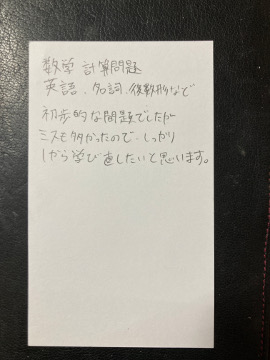 数学 計算問題
英語、名詞、復数形など
初歩的な問題でしたが
ミスも多かったので、しっかり
1から学び直したいと思います。